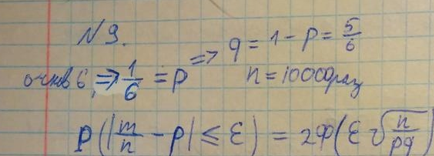 N 9.
очков 6, ⇒ 1/6 = p ⇒ q = 1 - p = 5/6
n = 10000 раз
P(|m/n - p| ≤ ε) = 2Φ(ε√(n/pq))